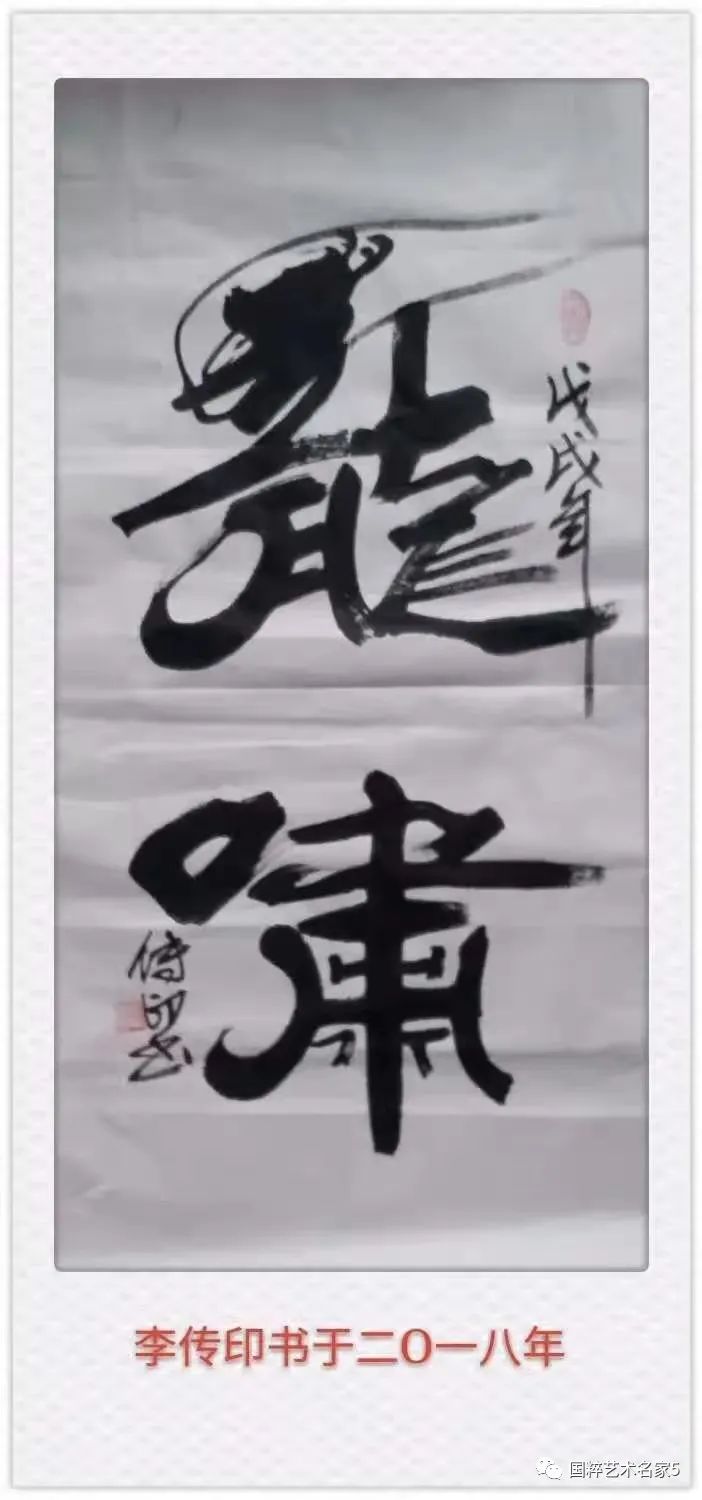 龍嘯
戊戌年
傳印书
李传印书于二O一八年
国粹艺术名家5